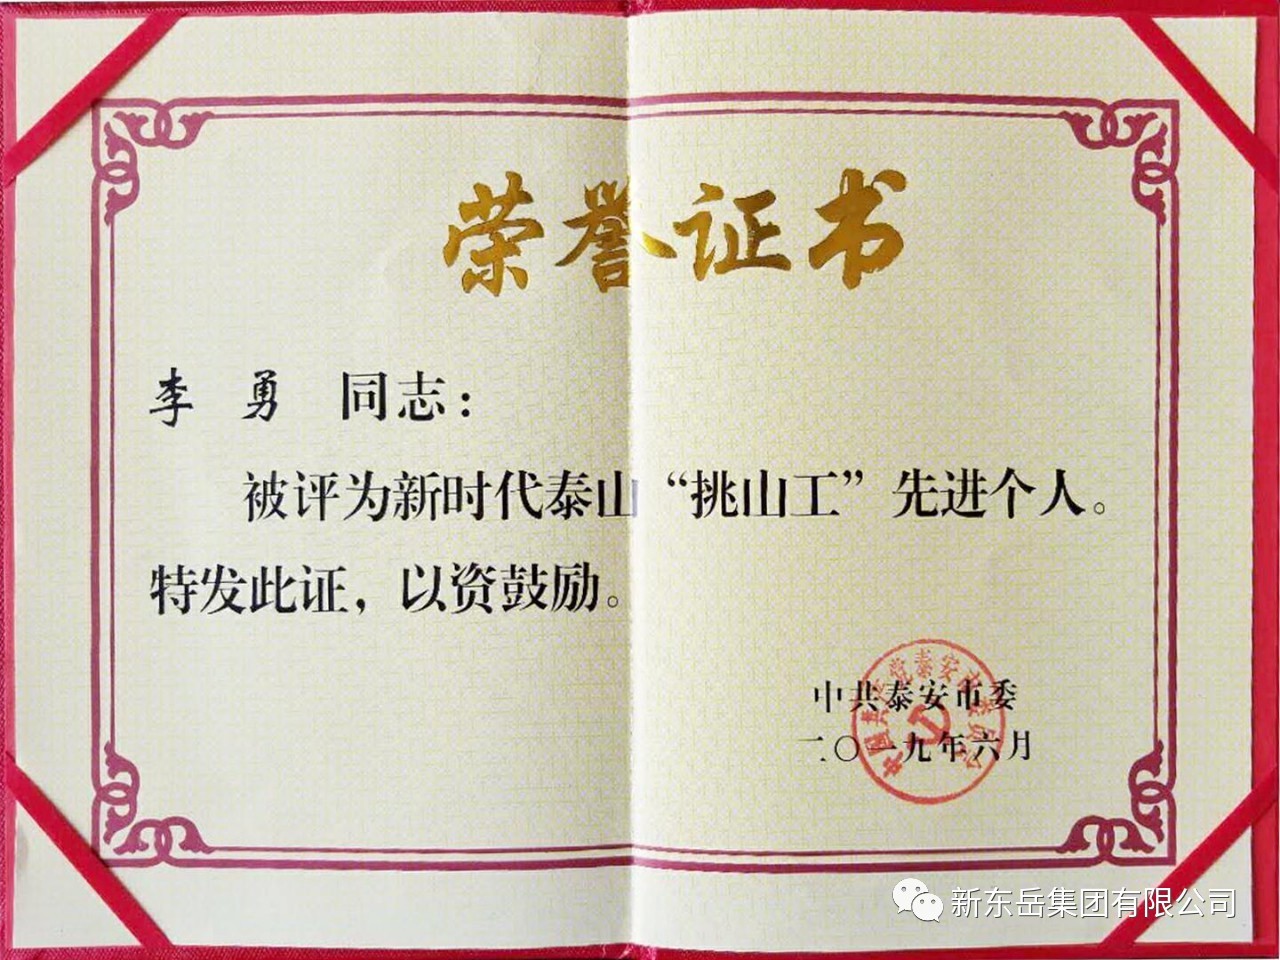 荣誉证书
李 勇 同志：
被评为新时代泰山“挑山工”先进个人。
特发此证，以资鼓励。
中共泰安市委
二〇一九年六月
中国共产党泰安市委员会
新东岳集团有限公司